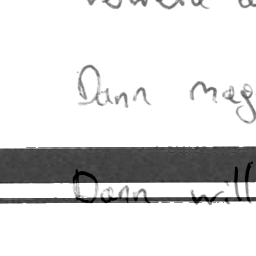 Dann mag
Dann will